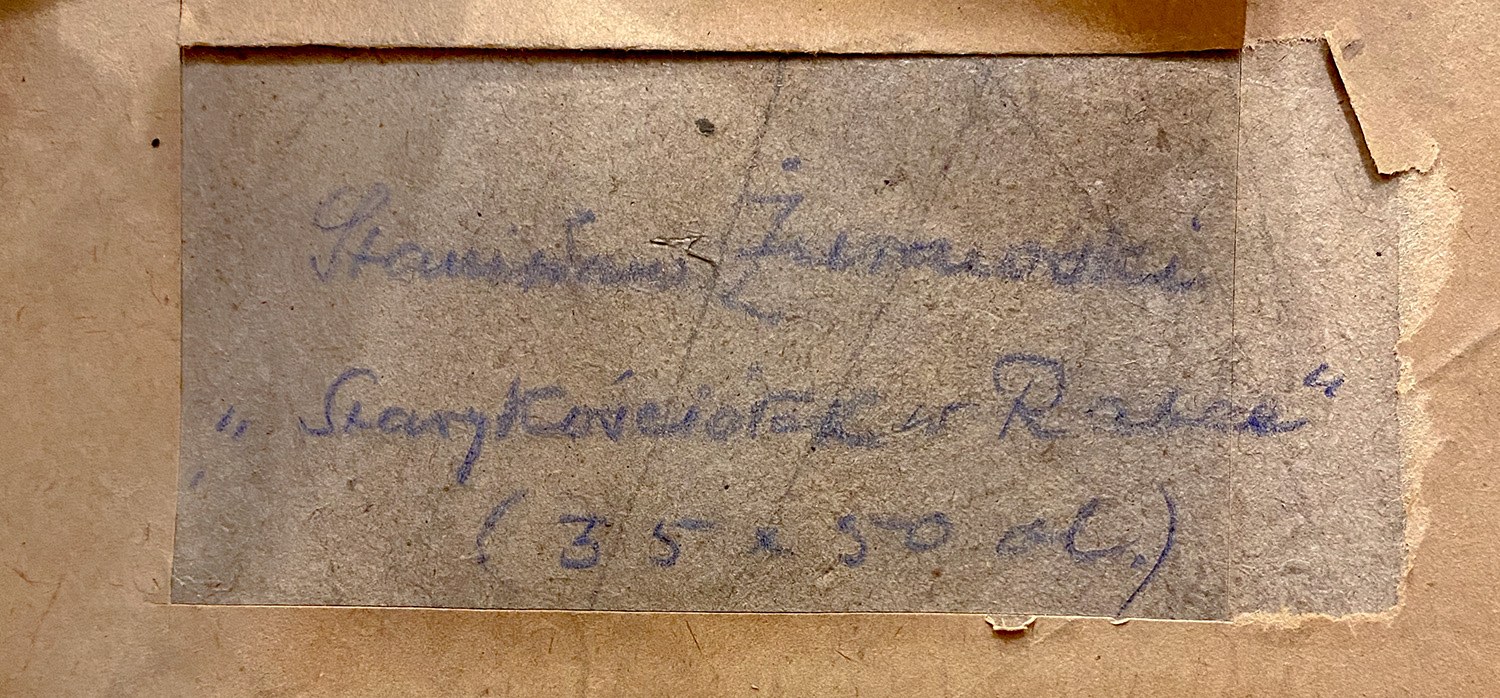 Stanisław Żurawski
„Stary Kościółek w Rabce“
(35 x 50 ol.)